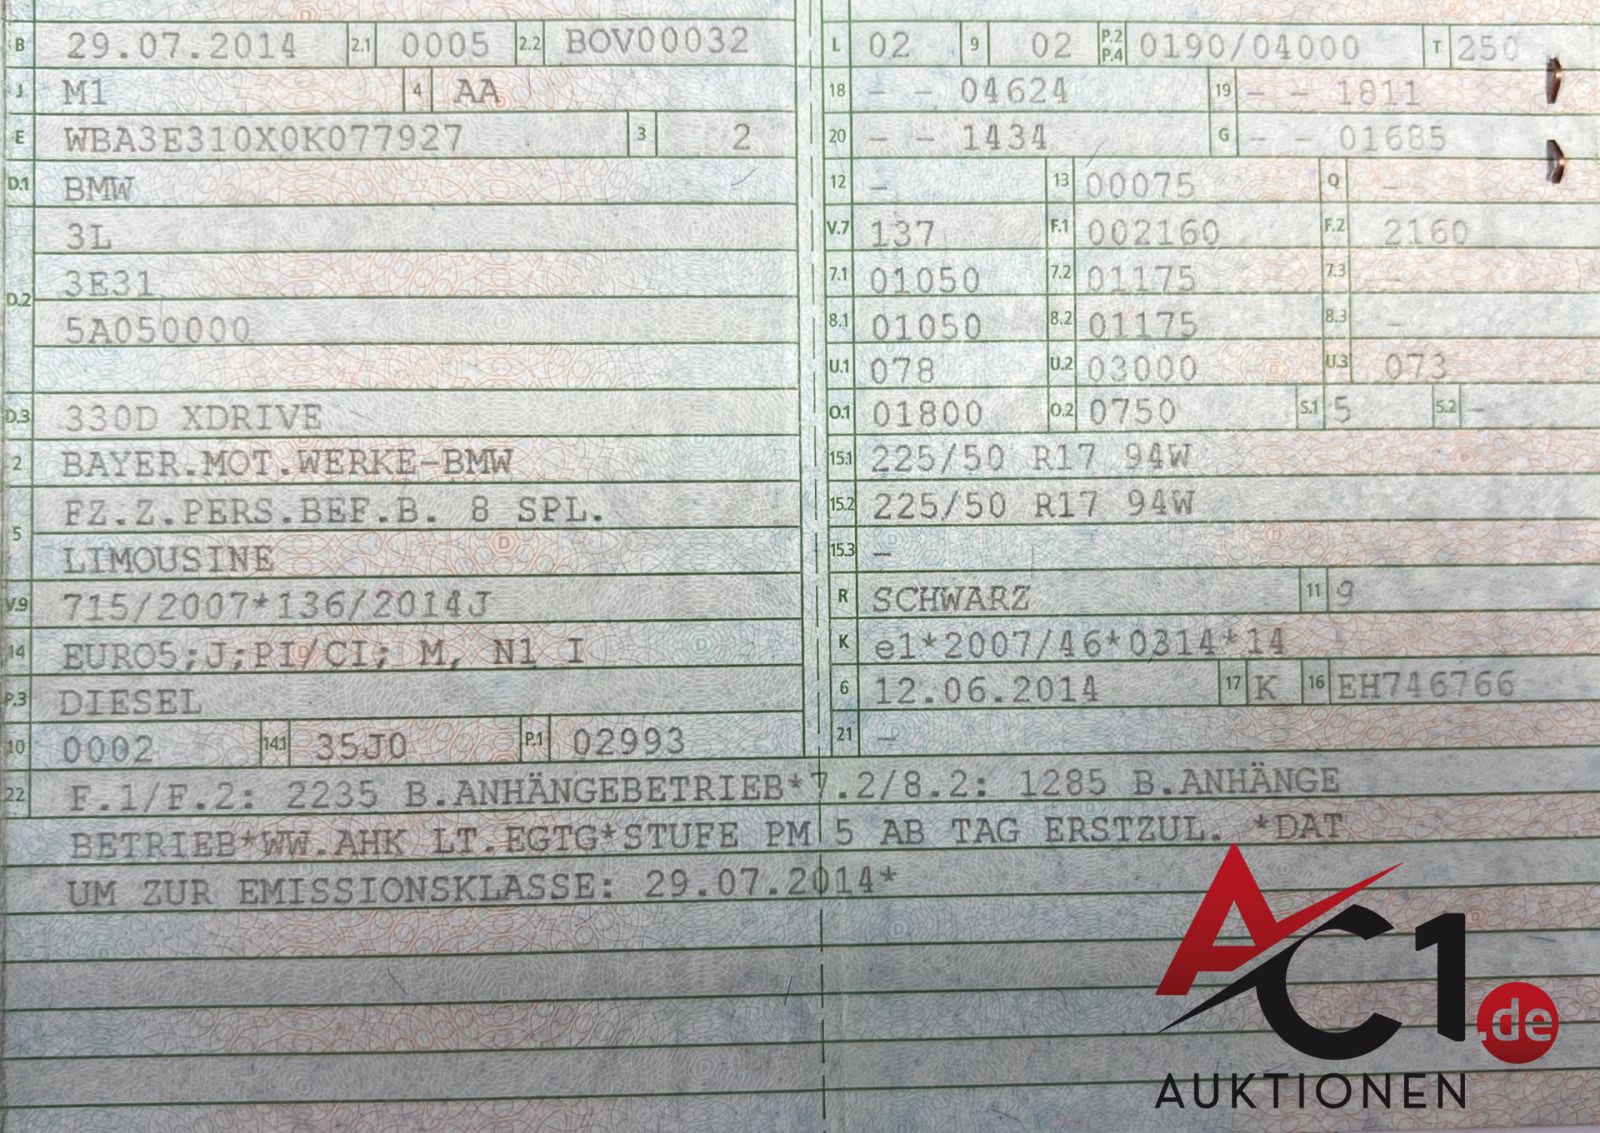 B 29.07.2014 2.1 0005 2.2 BOV00032
J M1 4 AA
E WBA3E310X0K077927 3 2
D.1 BMW
3L
D.2 3E31
5A050000
D.3 330D XDRIVE
2 BAYER.MOT.WERKE-BMW
5 FZ.Z.PERS.BEF.B. 8 SPL.
LIMOUSINE
V.9 715/2007*136/2014J
14 EURO5;J;PI/CI; M, N1 I
P.3 DIESEL
10 0002 14.1 35J0 P.1 02993
L 02 9 02 P.2 P.4 0190/04000 T 250
18 - - 04624 19 - - 1811
20 - - 1434 G - - 01685
12 - 13 00075 Q -
V.7 137 F.1 002160 F.2 2160
7.1 01050 7.2 01175 7.3 -
8.1 01050 8.2 01175 8.3 -
U.1 078 U.2 03000 U.3 073
O.1 01800 O.2 0750 S.1 5 S.2 -
15.1 225/50 R17 94W
15.2 225/50 R17 94W
15.3 -
R SCHWARZ 11 9
K e1*2007/46*0314*14
6 12.06.2014 17 K 16 EH746766
21 -
22 F.1/F.2: 2235 B.ANHÄNGEBETRIEB*7.2/8.2: 1285 B.ANHÄNGE
BETRIEB*WW.AHK LT.EGTG*STUFE PM 5 AB TAG ERSTZUL. *DAT
UM ZUR EMISSIONSKLASSE: 29.07.2014*
AC1.de
AUKTIONEN